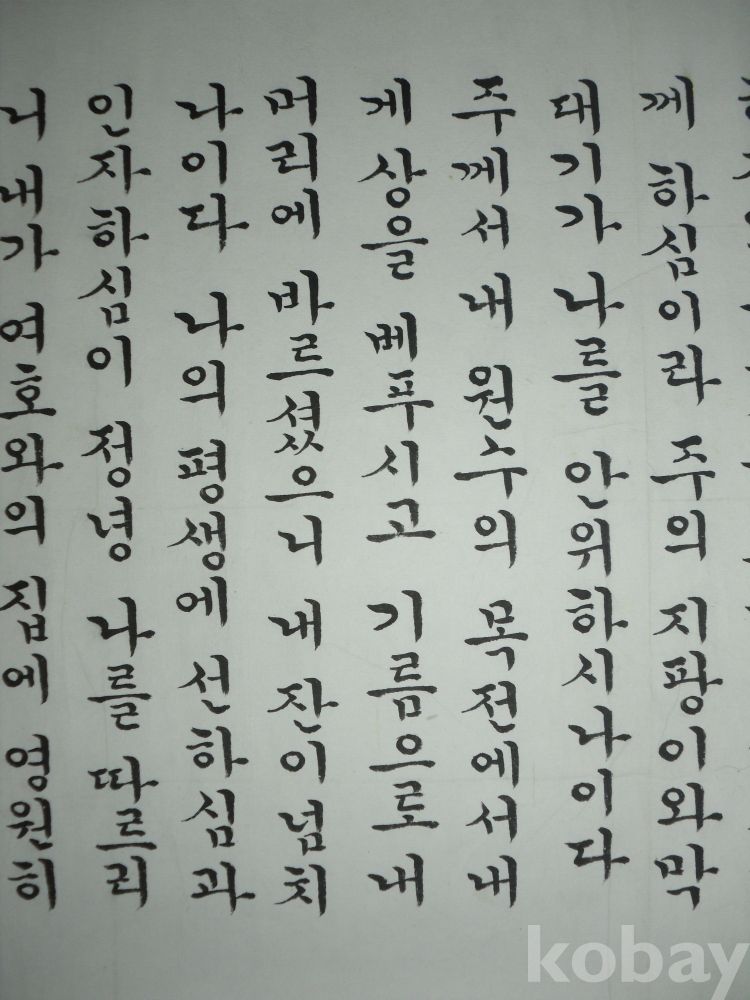 께 하심이라 주의 지팡이와 막
대기가 나를 안위하시나이다
주께서 내 원수의 목전에서 내
게 상을 베푸시고 기름으로 내
머리에 바르셨으니 내 잔이 넘치
나이다 나의 평생에 선하심과
인자하심이 정녕 나를 따르리
니 내가 여호와의 집에 영원히
kobay